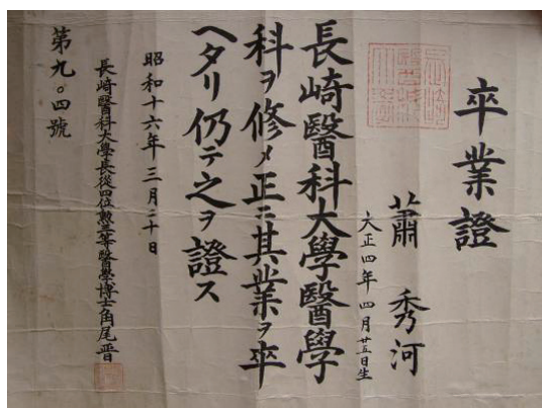 卒業證
蕭秀河
大正四年四月廿五日生
長崎醫科大學醫學
科ヲ修メ正ニ其業ヲ卒
ヘタリ仍テ之ヲ證ス
昭和十六年三月二十日
長崎醫科大學長從四位勲三等醫學博士角尾晋
第九〇四號